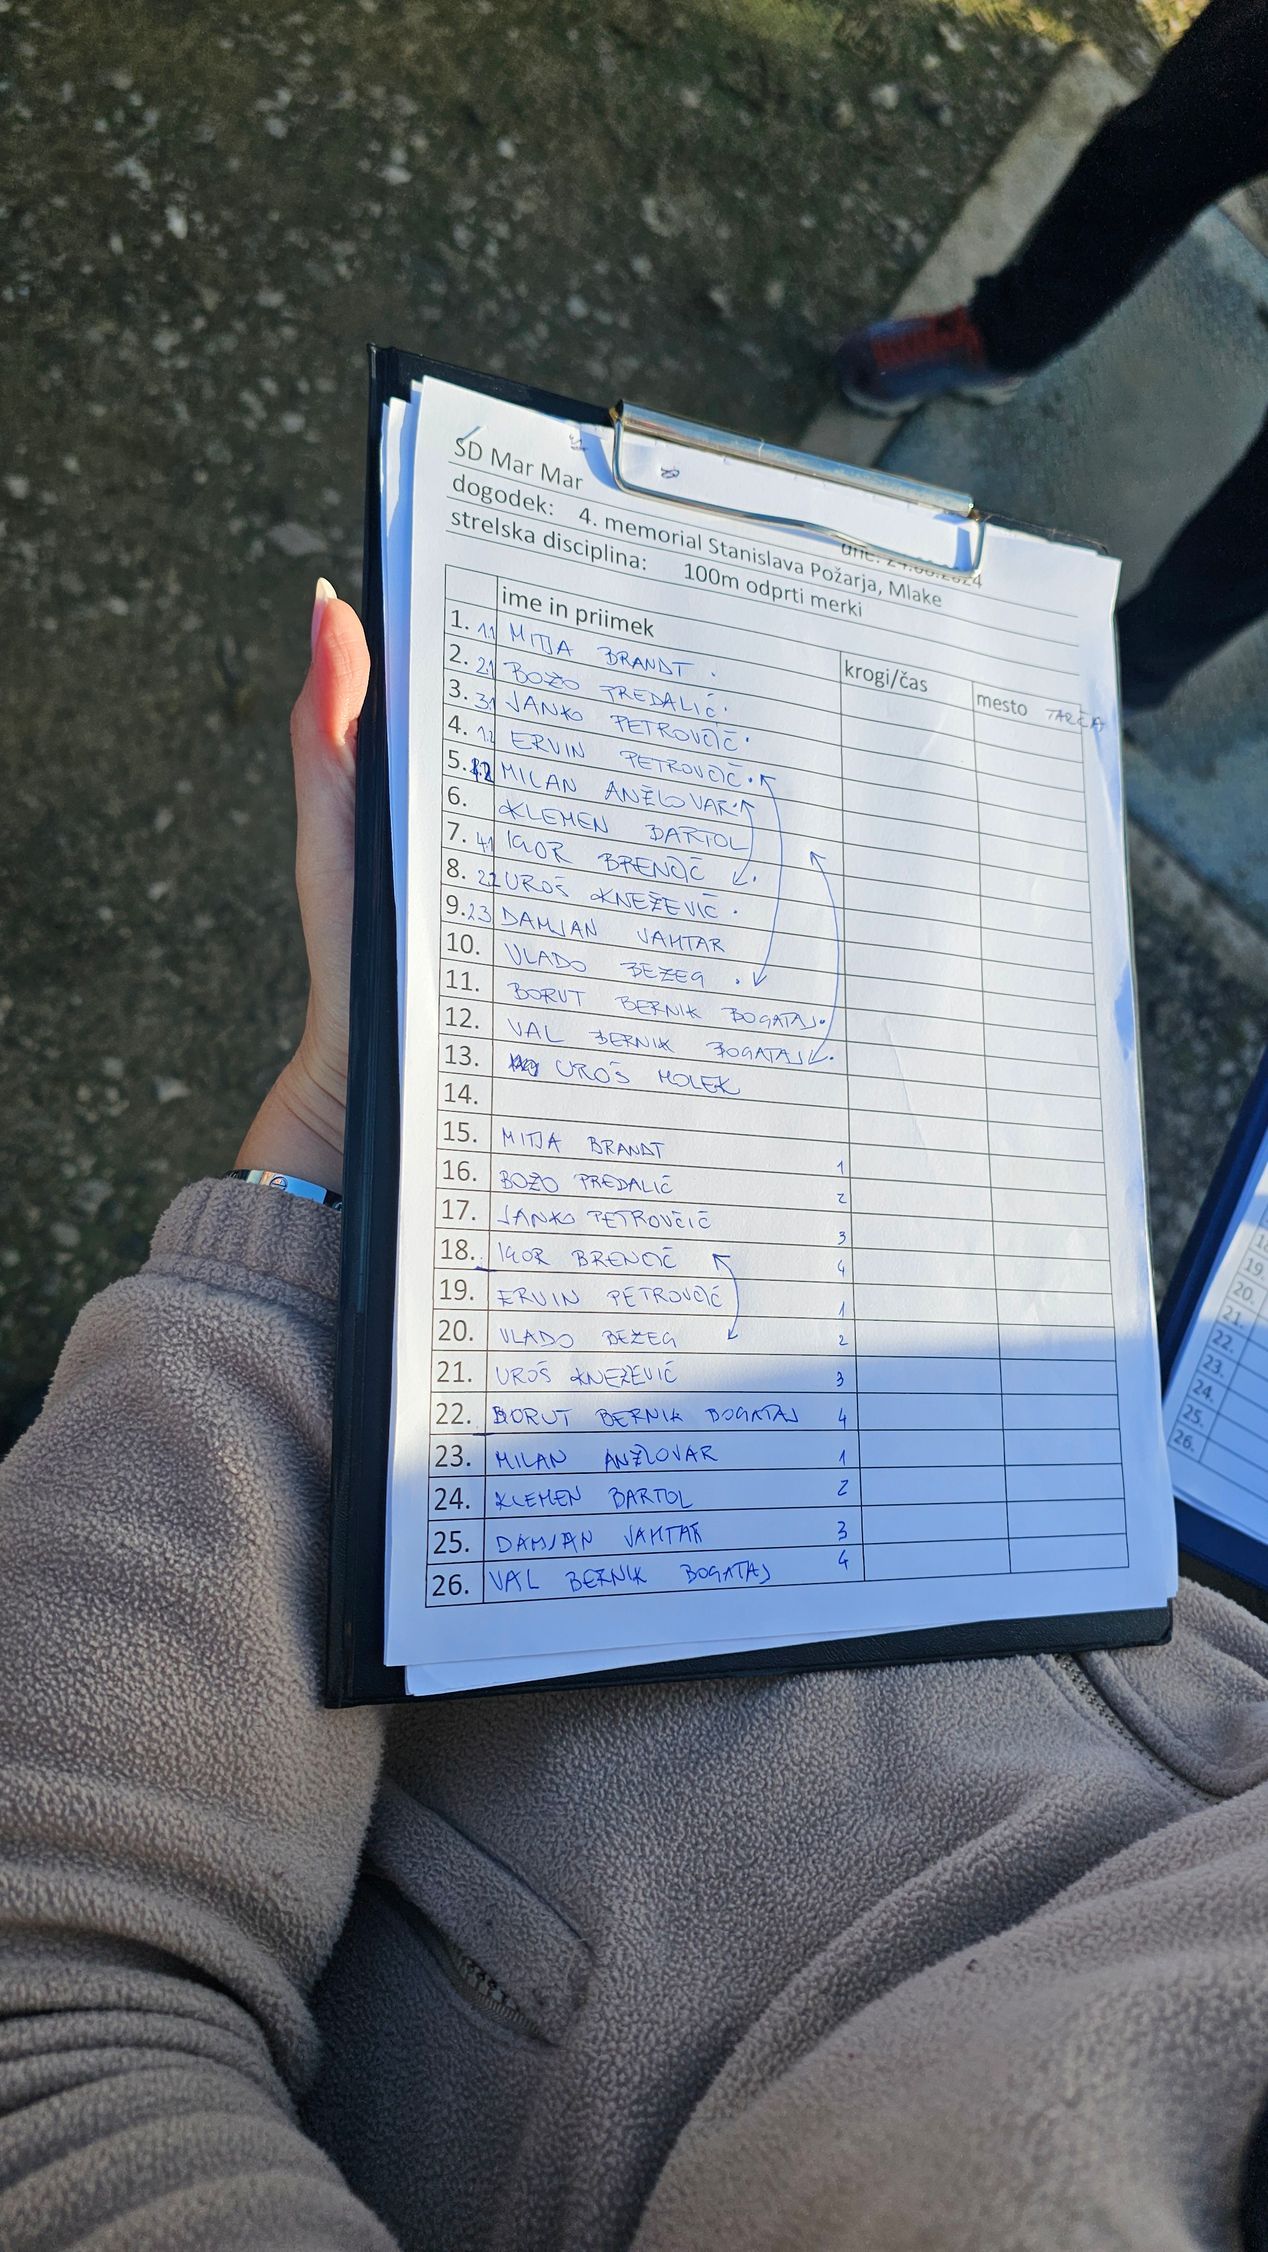 SD Mar Mar
dogodek: 4. memorial Stanislava Požarja, Mlake
strelska disciplina: 100m odprti merki
ime in priimek krogi/čas mesto TARČA
1. 11 MITJA BRANDT
2. 21 BOŽO PREDALIČ
3. 31 JANKO PETROVČIČ
4. 12 ERVIN PETROVČIČ
5. MILAN ANŽLOVAR
6. KLEMEN BARTOL
7. 41 IGOR BRENČIČ
8. 22 UROŠ KNEŽEVIČ
9. 23 DAMJAN JAMTAR
10. VLADO BEŽEG
11. BORUT BERNIK BOGATAJ
12. VAL BERNIK BOGATAJ
13. UROŠ MOLEK
14.
15. MITJA BRANDT 1
16. BOŽO PREDALIČ 2
17. JANKO PETROVČIČ 3
18. IGOR BRENČIČ 4
19. ERVIN PETROVČIČ 1
20. VLADO BEŽEG 2
21. UROŠ KNEŽEVIČ 3
22. BORUT BERNIK BOGATAJ 4
23. MILAN ANŽLOVAR 1
24. KLEMEN BARTOL 2
25. DAMJAN JAMTAR 3
26. VAL BERNIK BOGATAJ 4
19.
20.
21.
22.
23.
24.
25.
26.